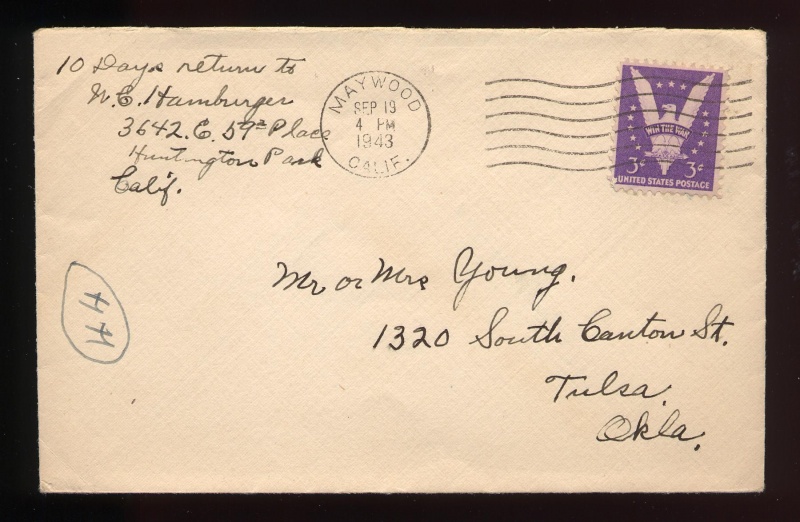 10 Days return to
N. E. Hamburger
3642. E. 59th Place
Huntington Park
Calif.
MAYWOOD
SEP 19
4 PM
1943
CALIF.
WIN THE WAR
3¢ 3¢
UNITED STATES POSTAGE
Mr or Mrs Young.
1320 South Canton St.
Tulsa.
Okla.
44